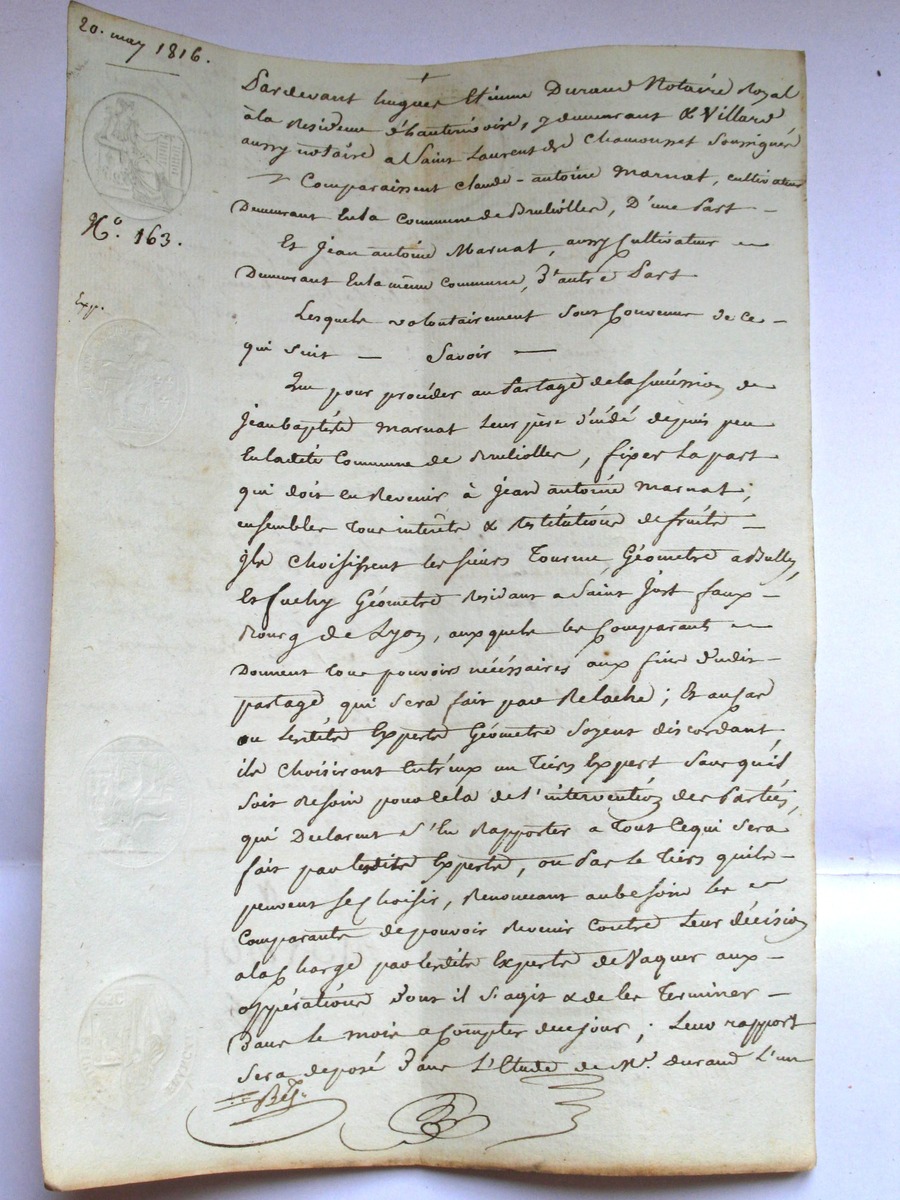 20. may 1816.
Pardevant hugues Etienne Durand Notaire Royal
à la Residence d'hauterivoire, y demeurant & Villard
aussy notaire a Saint Laurent de Chamousset Soussignés
Comparaissent Claude-antoine Marnat, cultivateur
N.º 163.
Demeurant En la Commune de Brulliolles, D'une Part
Et Jean antoine Marnat, aussy Cultivateur
Demeurant En la même Commune, D'autre Part
Exp.
Lesquels volontairement Sont Convenus de ce
qui suit — Savoir —
Que pour procéder au Partage de la Succession de
Jean baptiste Marnat Leur père décédé depuis peu
En ladite Commune de Brulliolles, fixer La part
qui doit en Revenir à Jean antoine Marnat;
ensembles tous intérêts & Restitutions de fruits
Ils Choisissent les sieurs Tourne, Géometre a Bully,
Et fuchy Géometre Residant a Saint Just faux-
Bourg de Lyon, auxquels les Comparants
Donnent tous pouvoirs nécéssaires aux fins dudit
partage qui sera fait sans Relache; Et au Cas
ou Lesdits Experts Géometre Soyent discordant,
ils Choisiront Entr'eux un Tiers Expert Sans qu'il
Soit Besoin pour Cela de l'intervention des Parties,
qui Declarent s'En Rapporter a Tout Ce qui Sera
fait par lesdits Experts, ou Par le Tiers qu'ils
peuvent se Choisir, Renoncant au besoin les
Comparants de pouvoir Revenir Contre Leur décision
a la Charge par lesdits Experts de Vaquer aux
oppérations dont il S'agit & de les Terminer
Dans le mois a Compter de ce jour; Leur rapport
Sera deposé Dans L'Etude de Me. Durand L'un